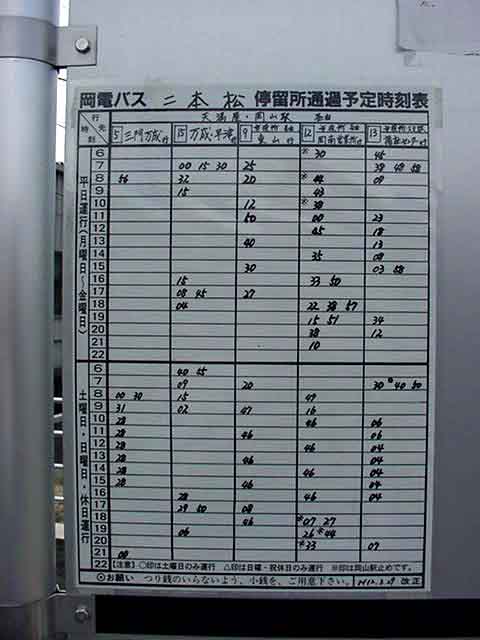 岡電バス 二本松 停留所通過予定時刻表
行先 時刻 天満屋・岡山駅 各由
5 三門万成行 15 万成・平津行 9 市役所 各由 東山行 12 市役所 各由 岡南営業所行 13
平日運行(月曜日~金曜日)
6 ※30 45
7 00 15 30 25 38 48 58
8 56 32 20 ※44 09
9 15 43
10 12 ※38
11 50 00 23
12 45 18
13 40 13
14 35 08
15 30 03 58
16 15 33 50
17 08 45 27
18 04 22 38 57
19 15 51 34
20 38 12
21 10
22
土曜日・日曜日・休日運行
6 40 55
7 09 20 30 40 50
8 00 30 15 49
9 31 02 47 16
10 28 46 06
11 28 46 06
12 28 46 04
13 28 46 04
14 28 46 04
15 28 46 04
16 28 46 04
17 29 50 08
18 46 ※07 27
19 06 26 ※44
20 ※33
21 00 07
22 【注意】 ○印は土曜日のみ運行 △印は日曜・祝休日のみ運行 ※印は岡山駅止めです。
⊙お願い つり銭のいらないよう、小銭を、ご用意下さい。 H12.3.29 改正